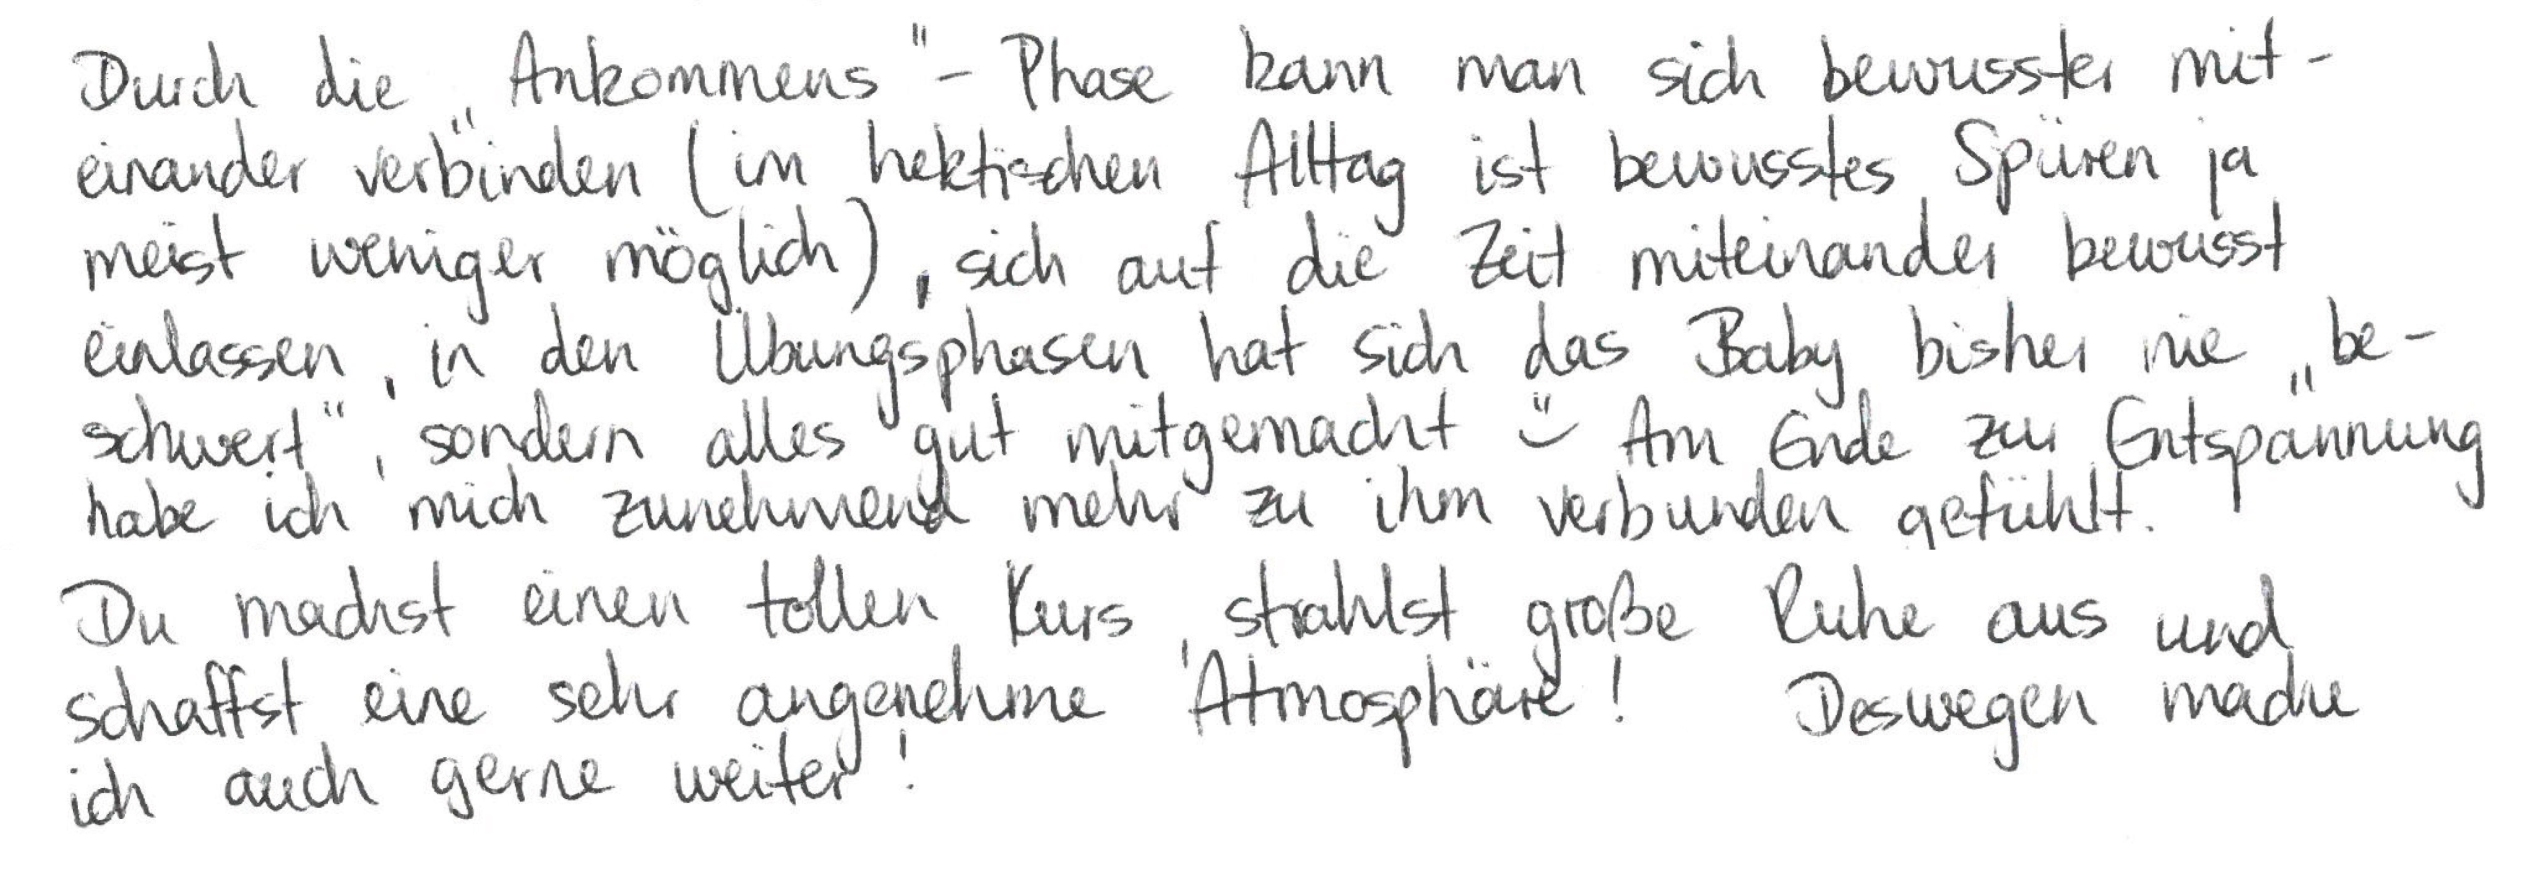 Durch die „Ankommens"-Phase kann man sich bewusster mit-
einander verbinden (im hektischen Alltag ist bewusstes Spüren ja
meist weniger möglich), sich auf die Zeit miteinander bewusst
einlassen, in den Übungsphasen hat sich das Baby bisher nie „be-
schwert“, sondern alles gut mitgemacht ü Am Ende zur Entspannung
habe ich mich zunehmend mehr zu ihm verbunden gefühlt.
Du machst einen tollen Kurs, strahlst große Ruhe aus und
schaffst eine sehr angenehme Atmosphäre! Deswegen mache
ich auch gerne weiter!